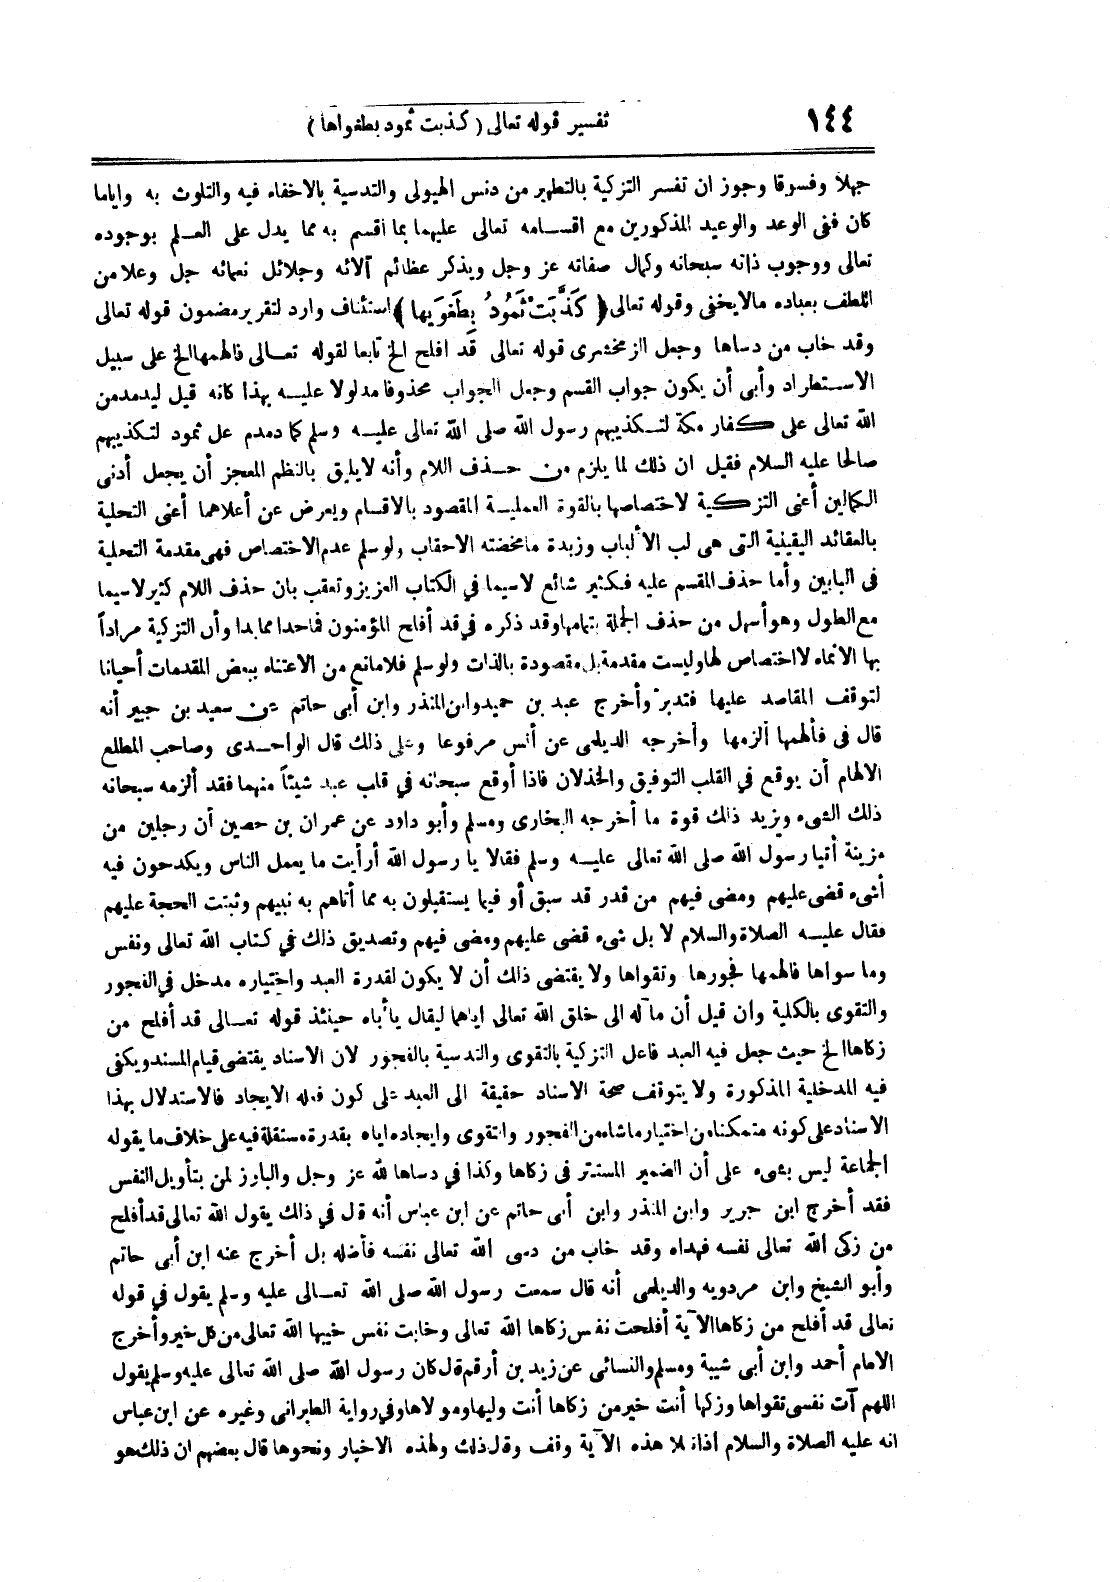 ١٤٤
تفسير قوله تعالى ( كذبت ثمود بطغواها )
جهلا وفسوقا وجوز ان تفسر التزكية بالتطهر من دنس الهيولى والتدسية بالاخفاء فيه والتلوث به واياما
كان ففى الوعد والوعيد المذكورين مع اقسامه تعالى عليهما بما أقسم به مما يدل على العلم بوجوده
تعالى ووجوب ذاته سبحانه وكمال صفاته عز وجل ويذكر عظائم آلائه وجلائل نعمائه جل وعلا من
اللطف بعباده مالايخفى وقوله تعالى ﴿ كَذَّبَتْ ثَمُودُ بِطَغْوَيها ﴾ استئناف وارد لتقرير مضمون قوله تعالى
وقد خاب من دساها وجعل الزمخشرى قوله تعالى قد افلح الخ تابعا لقوله تعالى فالهمها الخ على سبيل
الاستطراد وأبى أن يكون جواب القسم وجعل الجواب محذوفا مدلولا عليه بهذا كانه قيل ليدمدمن
الله تعالى على كفار مكة لتكذيبهم رسول الله صلى الله تعالى عليه وسلم كما دمدم على ثمود لتكذيبهم
صالحا عليه السلام فقيل ان ذلك لما يلزم من حذف اللام وأنه لايليق بالنظم المعجز أن يجعل أدنى
الكمالين أعنى التزكية لاختصاصها بالقوة العملية المقصود بالاقسام ويعرض عن أعلاهما أعنى التحلية
بالعقائد اليقينية التى هى لب الألباب وزبدة مامخضته الاحقاب ولو سلم عدم الاختصاص فهى مقدمة التحلية
فى البابين وأما حذف المقسم عليه فكثير شائع لاسيما في الكتاب العزيز وتعقب بان حذف اللام كثير لاسيما
مع الطول وهو أسهل من حذف الجملة بتمامها وقد ذكره في قد أفلح المؤمنون فماحدا مما بدا وأن التزكية مراداً
بها الانماء لااختصاص لها وليست مقدمة بل مقصودة بالذات ولو سلم فلامانع من الاعتناء ببعض المقدمات أحيانا
لتوقف المقاصد عليها فتدبر وأخرج عبد بن حميد وابن المنذر وابن أبى حاتم عن سعيد بن جبير أنه
قال فى فألهمها ألزمها وأخرجه الديلمى عن أنس مرفوعا وعلى ذلك قال الواحدى وصاحب المطلع
الالهام أن يوقع في القلب التوفيق والخذلان فاذا أوقع سبحانه في قلب عبد شيئاً منهما فقد ألزمه سبحانه
ذلك الشىء ويزيد ذلك قوة ما أخرجه البخارى ومسلم وأبو داود عن عمران بن حصين أن رجلين من
مزينة أتيا رسول الله صلى الله تعالى عليه وسلم فقالا يا رسول الله أرأيت ما يعمل الناس ويكدحون فيه
أشىء قضى عليهم ومضى فيهم من قدر قد سبق أو فيما يستقبلون به مما أتاهم به نبيهم وثبتت الحجة عليهم
فقال عليه الصلاة والسلام لا بل شىء قضى عليهم ومضى فيهم وتصديق ذلك في كتاب الله تعالى ونفس
وما سواها فالهمها فجورها وتقواها ولا يقتضى ذلك أن لا يكون لقدرة العبد واختياره مدخل في الفجور
والتقوى بالكلية وان قيل أن مآله الى خلق الله تعالى اياهما ليقال يأباه حينئذ قوله تعالى قد أفلح من
زكاها الخ حيث جعل فيه العبد فاعل التزكية بالتقوى والتدسية بالفجور لان الاسناد يقتضى قيام المسند ويكفى
فيه المدخلية المذكورة ولا يتوقف صحة الاسناد حقيقة الى العبد على كون فعله الايجاد فالاستدلال بهذا
الاسناد على كونه متمكنا من اختيار ماشاء من الفجور والتقوى وايجاده اياه بقدرة مستقلة فيه على خلاف ما يقوله
الجماعة ليس بشىء على أن الضمير المستتر فى زكاها وكذا في دساها لله عز وجل والبارز لمن بتأويل النفس
فقد أخرج ابن جرير وابن المنذر وابن أبى حاتم عن ابن عباس أنه قال في ذلك يقول الله تعالى قد أفلح
من زكى الله تعالى نفسه فهداه وقد خاب من دسى الله تعالى نفسه فأضله بل أخرج عنه ابن أبى حاتم
وأبو الشيخ وابن مردويه والديلمى أنه قال سمعت رسول الله صلى الله تعالى عليه وسلم يقول في قوله
تعالى قد أفلح من زكاها الآية أفلحت نفس زكاها الله تعالى وخابت نفس خيبها الله تعالى من كل خير وأخرج
الامام أحمد وابن أبى شيبة ومسلم والنسائى عن زيد بن أرقم قال كان رسول الله صلى الله تعالى عليه وسلم يقول
اللهم آت نفسى تقواها وزكها أنت خير من زكاها أنت وليها ومولاها وفي رواية الطبرانى وغيره عن ابن عباس
انه عليه الصلاة والسلام اذا تلا هذه الآية وقف وقال ذلك ولهذه الاخبار ونحوها قال بعضهم ان ذلك هو